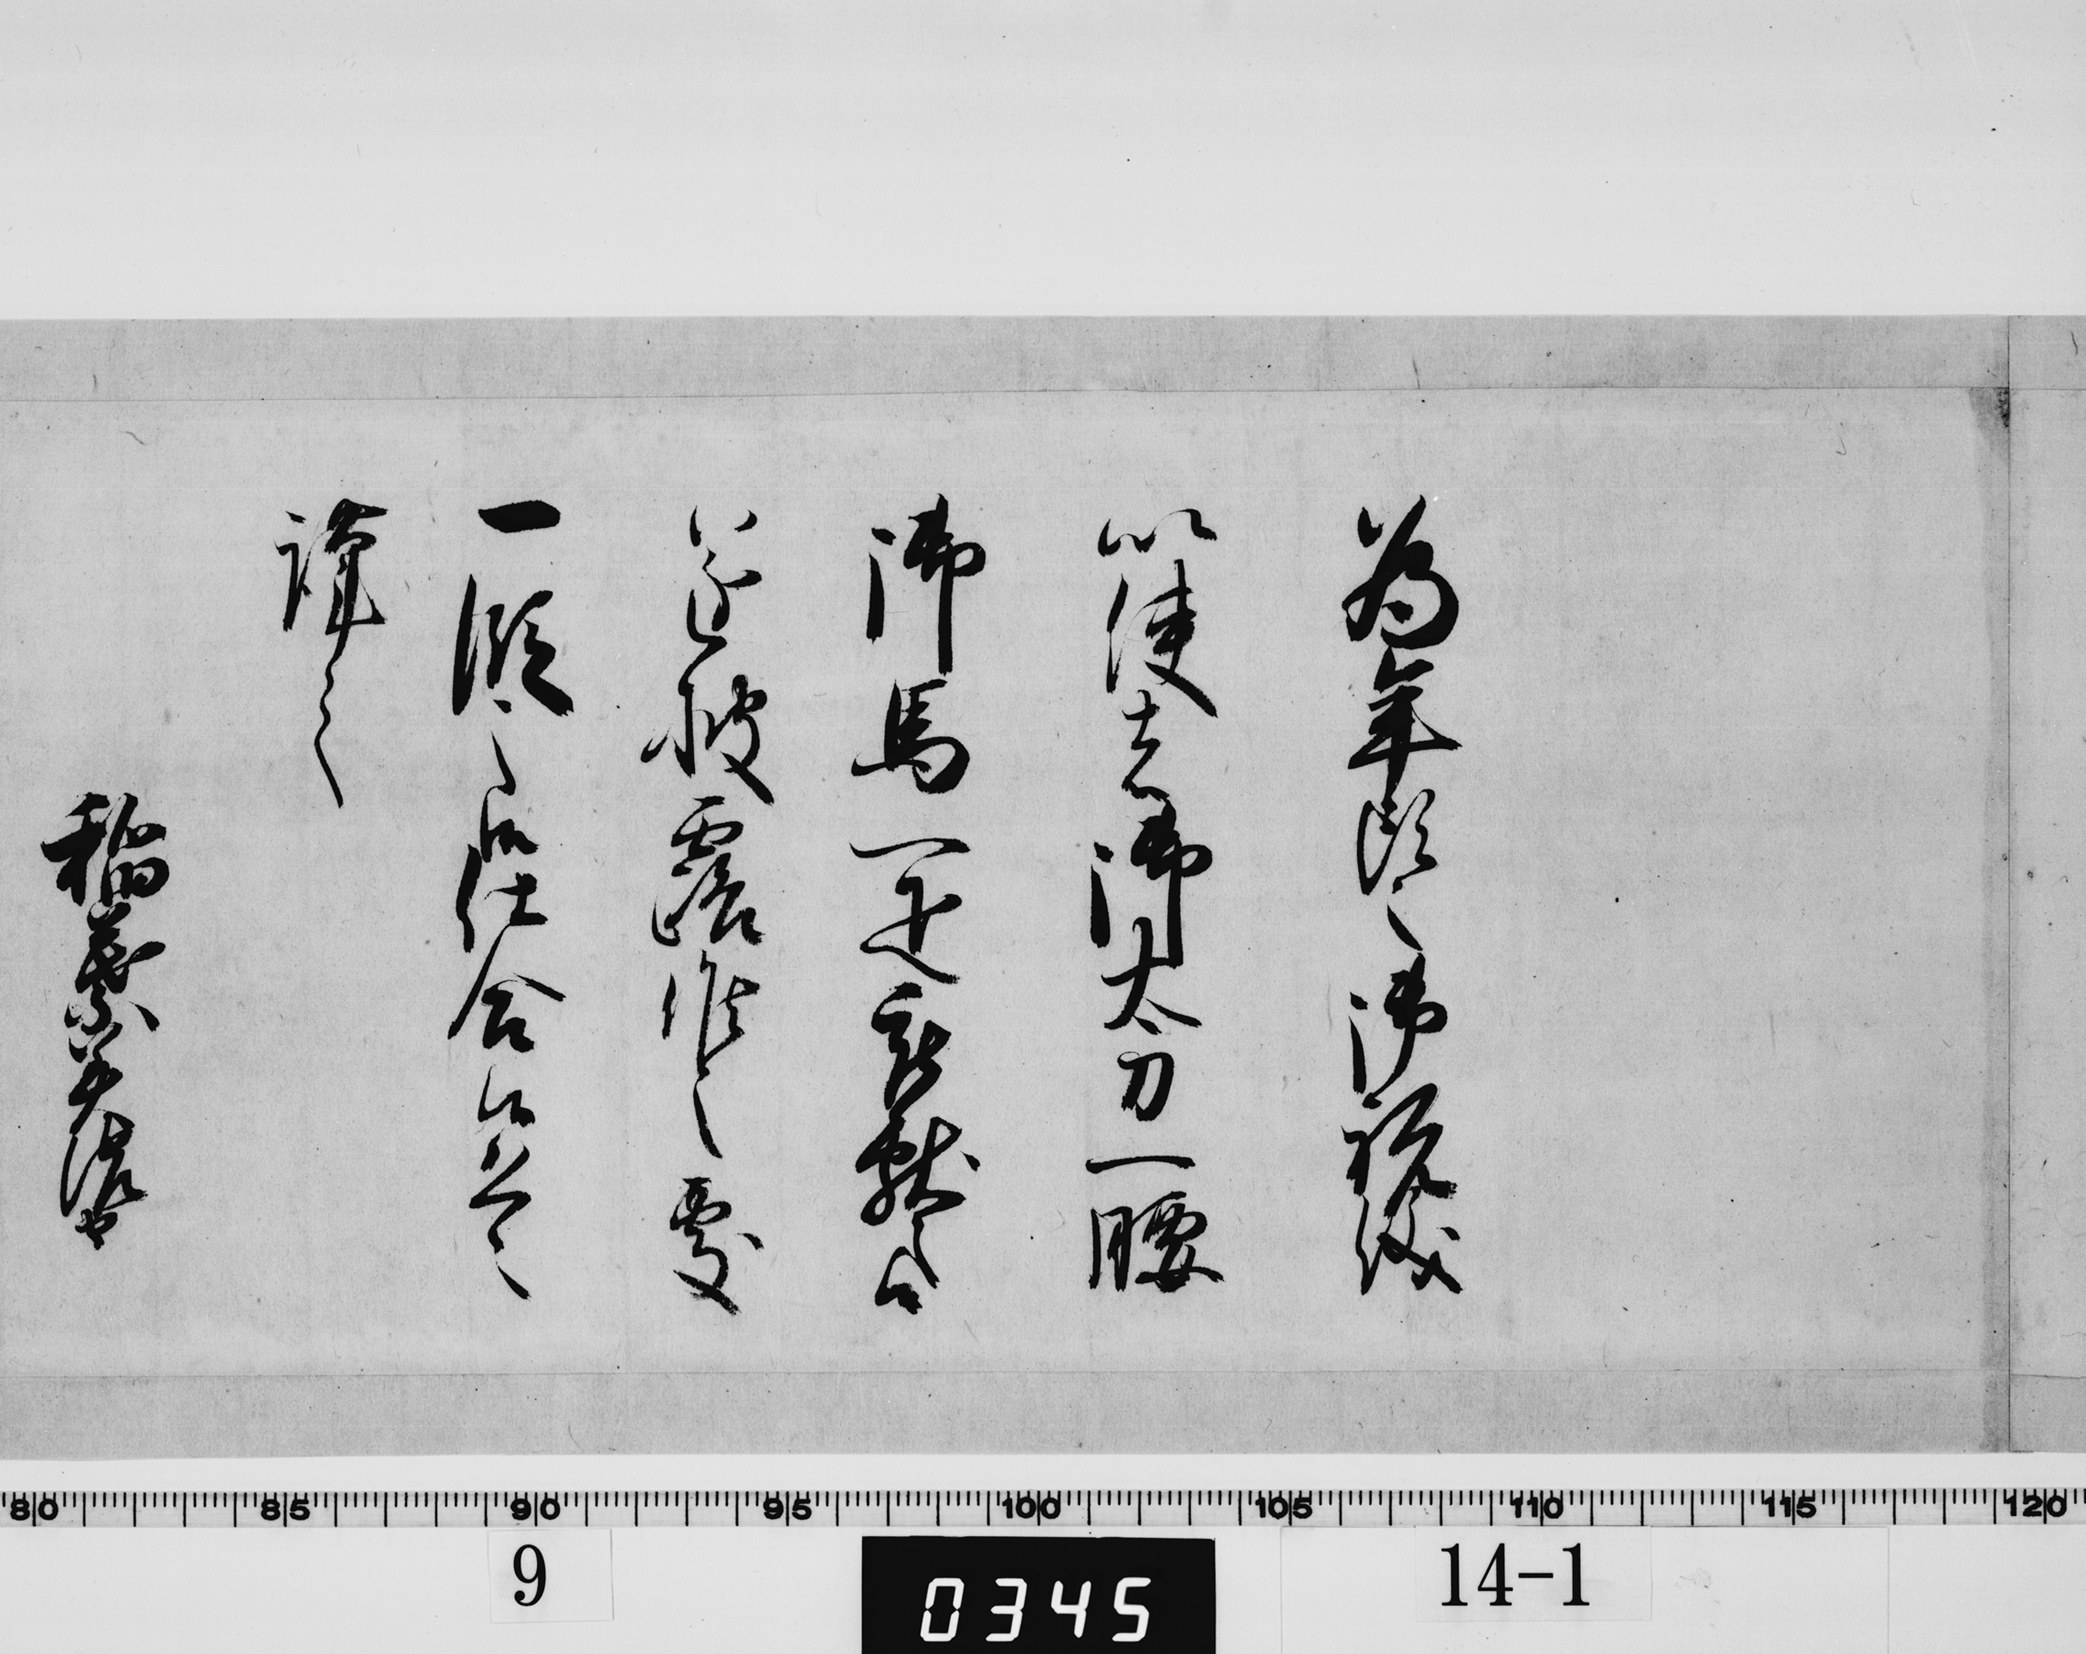 為年頭之御祝儀
以使者御太刀一腰
御馬一疋献
遂披露候之處
一段之御仕合候恐々
謹言
稲葉美濃守
80 85 90 95 100 105 110 115 120
9 0345 14-1